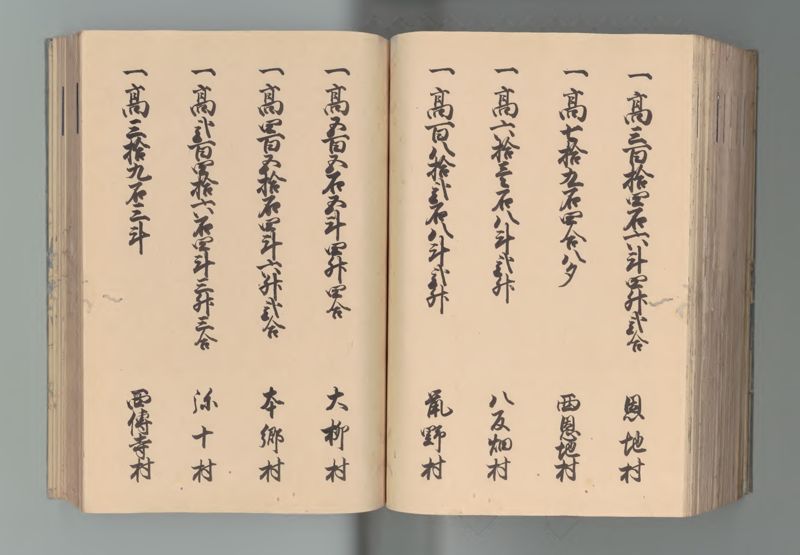 一高三百拾四石六斗四升弐合 恩地村
一高七拾九石四合八夕 西恩地村
一高六拾壱石八斗弐升 八反畑村
一高百八拾弐石八斗弐升 荒野村
一高五百五石五斗四升四合 大柳村
一高四百五拾石四斗六升弐合 本郷村
一高弐百四拾六石四斗三升三合 弥十村
一高三拾九石三斗 西傳寺村